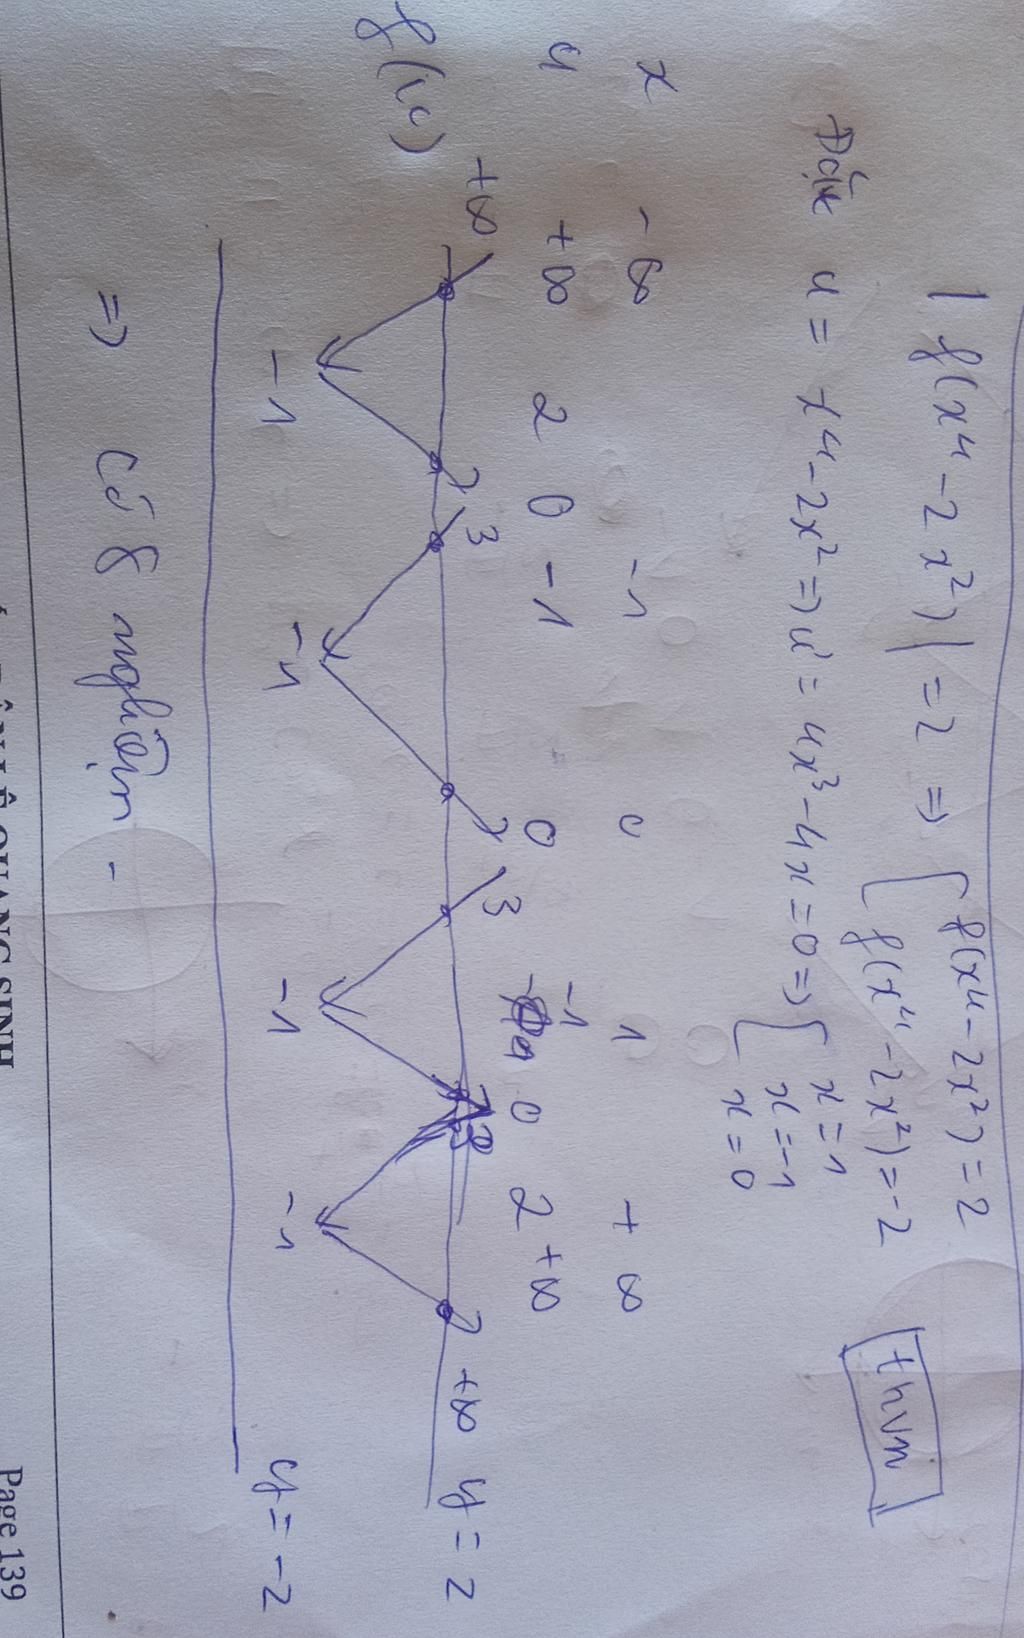 |f(x⁴ - 2x²)| = 2 => [ f(x⁴ - 2x²) = 2
f(x⁴ - 2x²) = -2
thvn
Đặt u = x⁴ - 2x² => u' = 4x³ - 4x = 0 => [ x = 1
x = -1
x = 0
x -∞ -1 0 1 +∞
u +∞ 2 0 -1 0 -1 0 2 +∞
f(u) +∞ -1 3 -1 3 -1 3 -1 +∞ y = 2
y = -2
=> Có 8 nghiệm -
QUANG SINH
Page 139